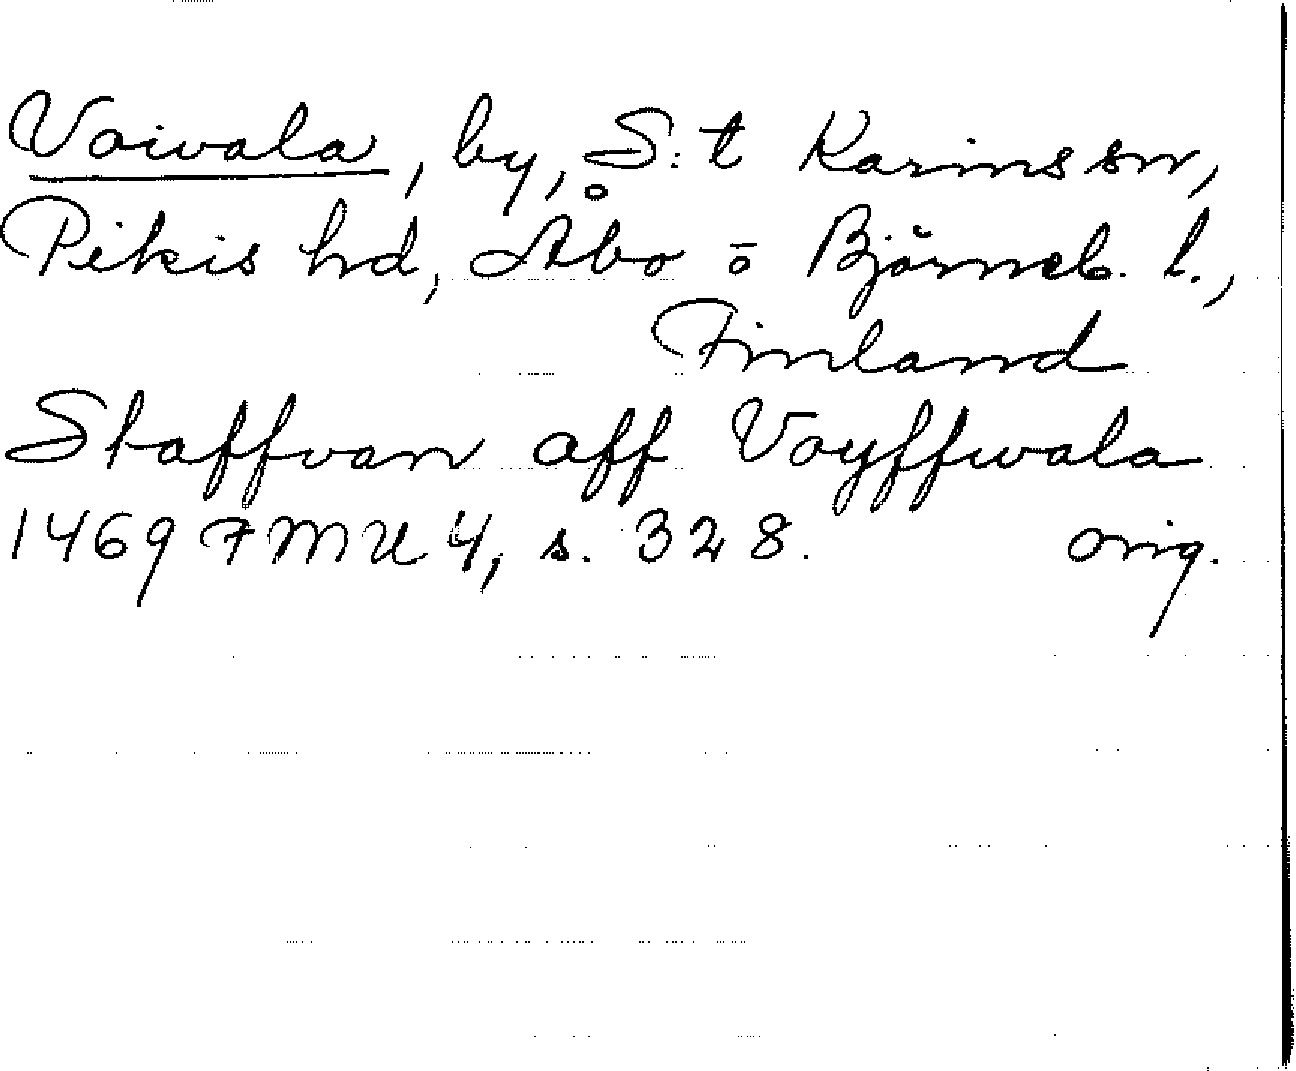 Voivala, by, S:t Karins sn,
Pikis hd, Åbo o Björneb. l.,
Finland
Staffvan aff Voyffwala
1469 FMU 4, s. 328. orig.